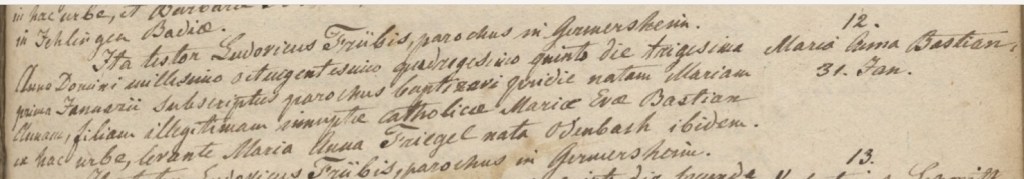 in hac urbe, et Barbara
in Ichlingen Badiæ.
Ita testor Ludovicus Frübis, parochus in Germersheim.
12.
Anno Domini millesimo octingentesimo quadragesimo quinto die trigesima
Maria Anna Bastian,
prima Januarii subscriptus parochus baptizavi pridie natam Mariam
31. Jan.
Annam, filiam illegitimam innuptæ catholicæ Mariæ Evæ Bastian
ex hac urbe, levante Maria Anna Friegel nata Odenbach ibidem.
Ludovicus Frübis, parochus in Germersheim.
13.